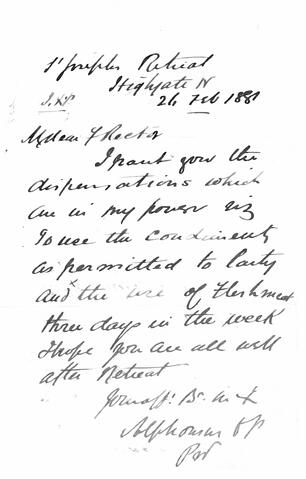 St Josephs Retreat
Highgate N
J.XP 26 Feb 1881
My dear F Rector
I grant you the
dispensations which
are in my power viz
To use the condiments
as permitted to laity
and x the use of Fleshmeat
three days in the week
I hope you are all well
after Retreat
Yours aff. Br. in X
Alphonsus